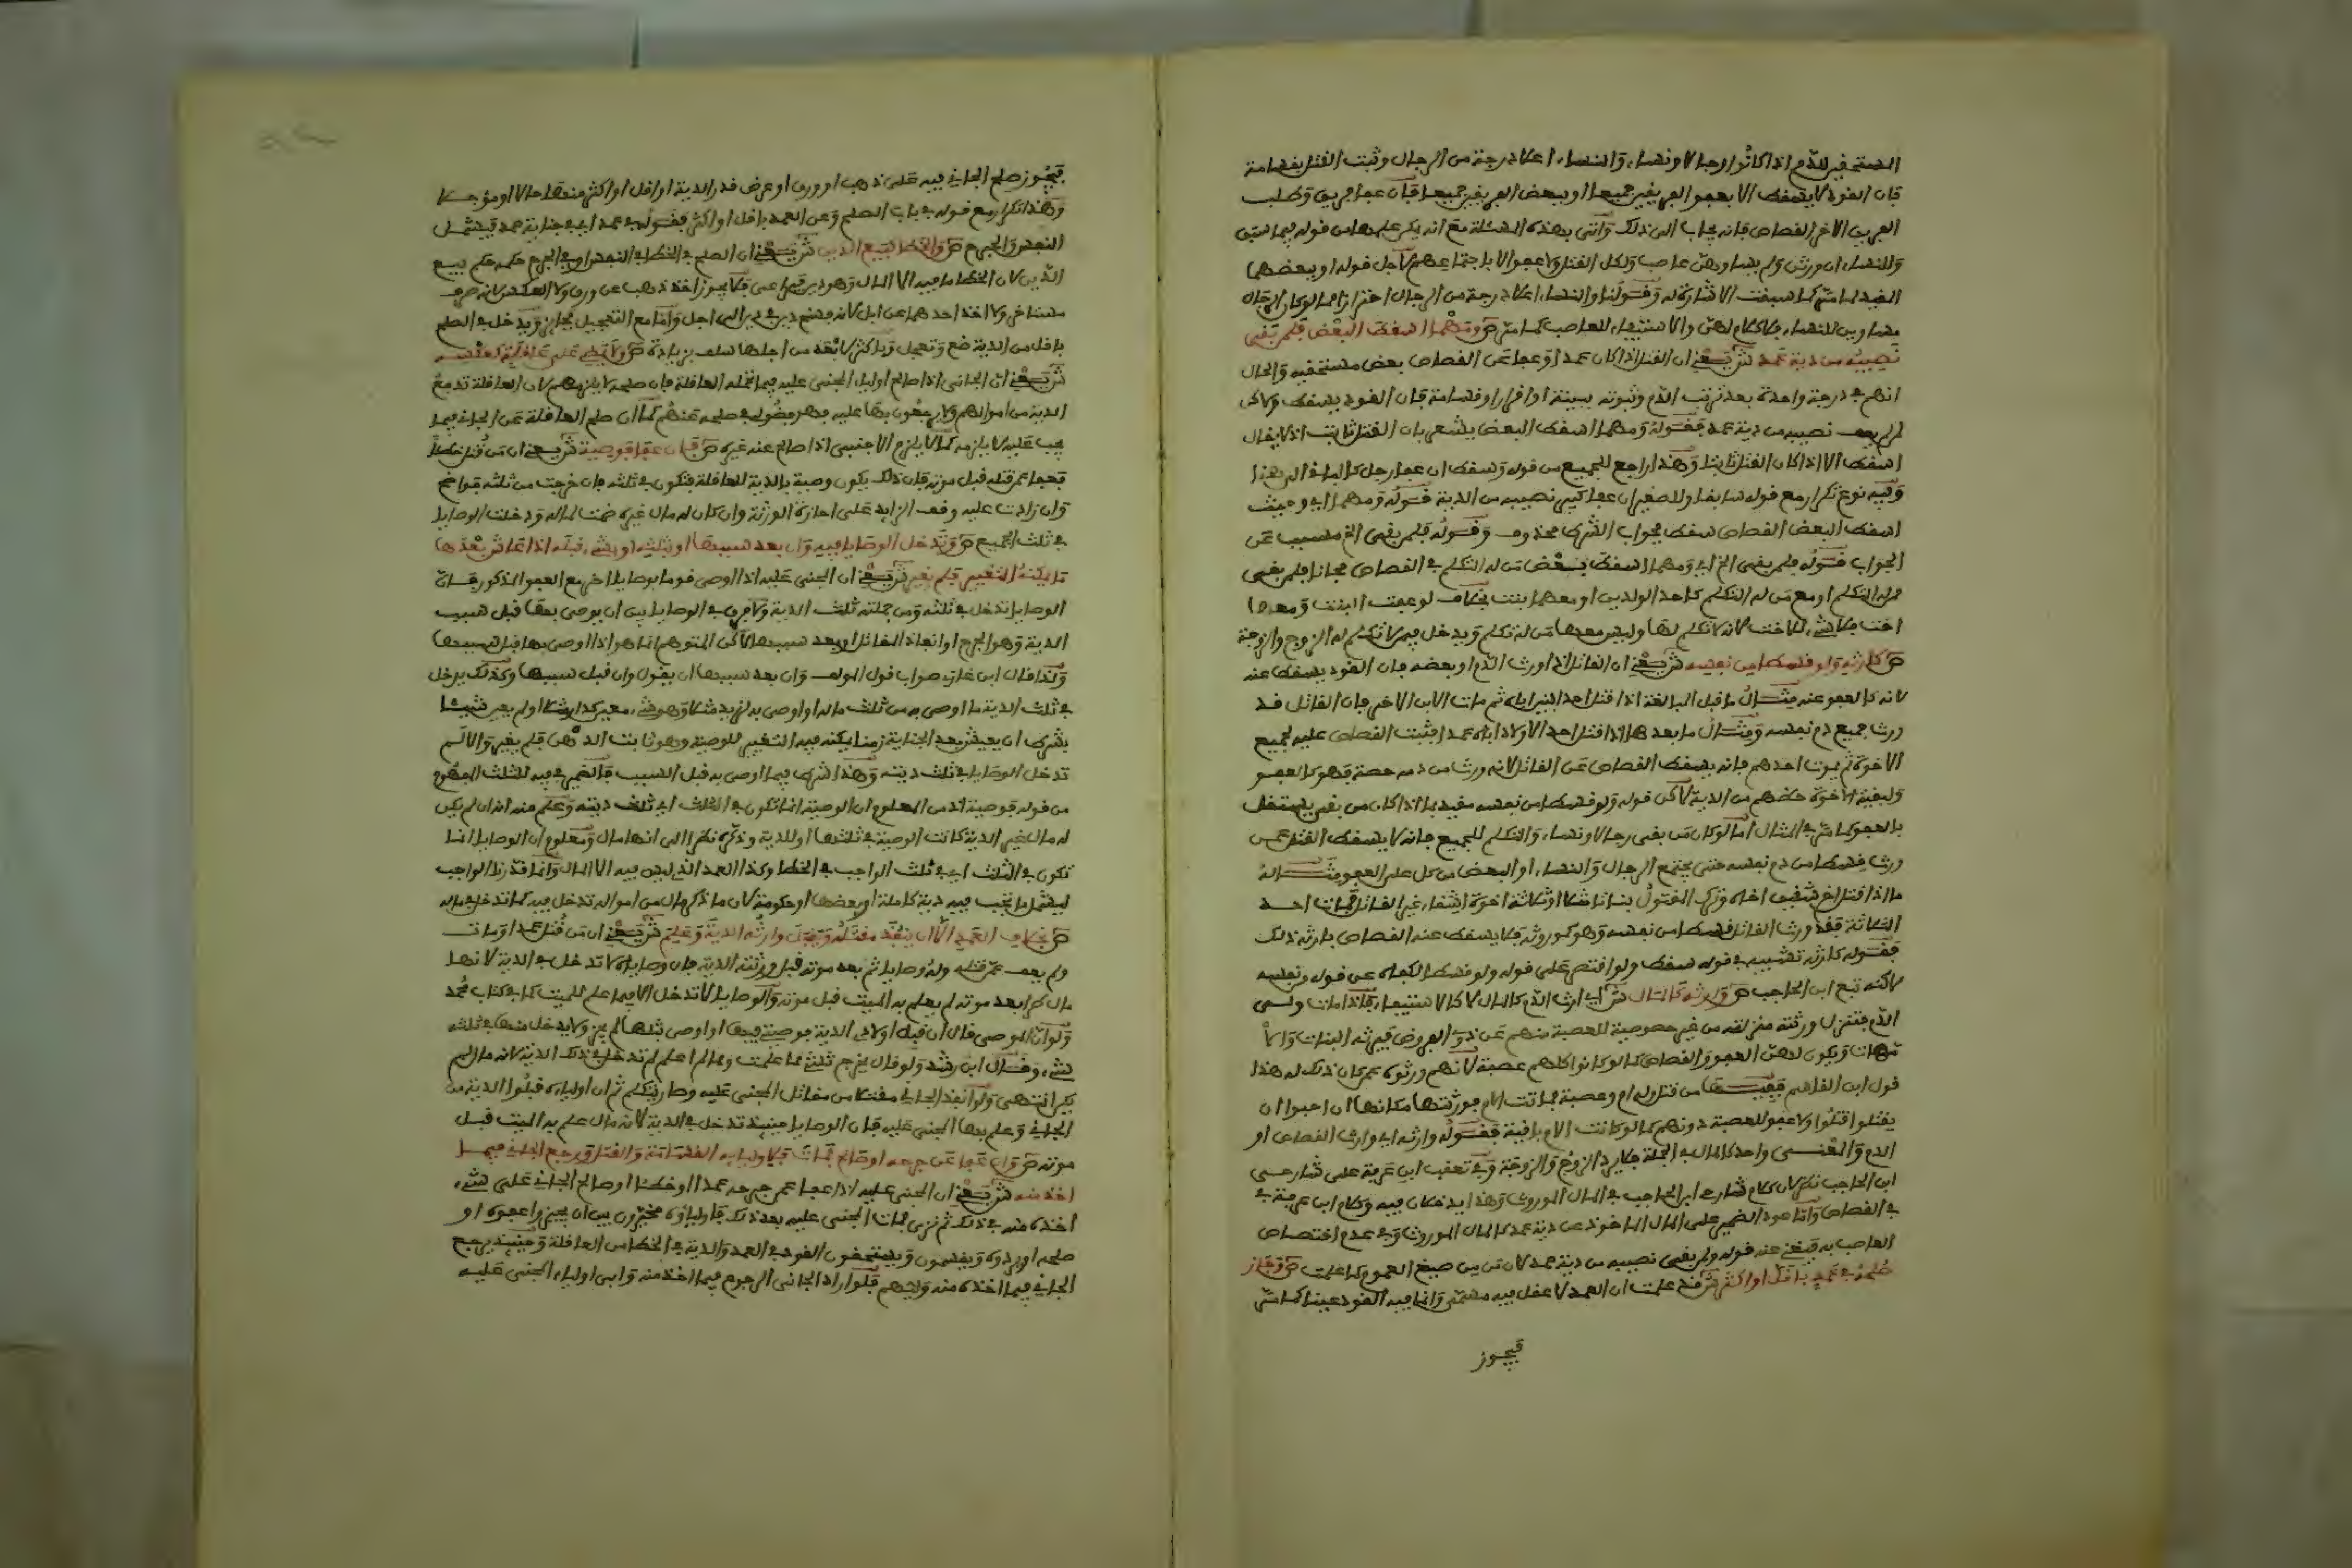 المستحفين للدم اذا كانوا رجالا ونساء والنساء اعلا درجة من الرجال وثبت القتل بقسامة
فان القود لا يسقط الا بعفو الفريقين جميعا او ببعض الفريقين جميعا فان عفا فريق وطلب
الفريق الاخر القصاص فانه يجاب الى ذلك واتى بهذه المسئلة مع انه يكر علمها من قوله فيما سبق
وللنساء ان ورثن ولم يساوهن عاصب ولكل القتل ولا عفو الا باجتماعهم لاجل قوله او ببعضهما
المفيد لما سبق كما سبقت الاشارة له وقولنا والنساء اعلا درجة من الرجال احترازا مما لو كان الرجال
مساوين للنساء فلا كلام لهن والاستيفاء للعاصب كما مر ص ومهما اسقط البعض فلمن بقى
نصيبه من دية عمد ش يعني ان القتل اذا كان عمدا وعفا عن القصاص بعض مستحقيه والحال
انهم في درجة واحدة بعد ترتب الدم وثبوته ببينة او اقرار او قسامة فان القود يسقط ولاكن
لمن لم يعف نصيبه من دية عمد فقوله ومهما اسقط البعض يشعر بان القتل ثابت اذ لا يقال
اسقط الا اذا كان القتل ثابتا وهذا راجع للجميع من قوله وسقط ان عفا رجل كالباقي الى هذا
وفيه نوع تكرار مع قوله سابقا وللصغير ان عفا كبير نصيبه من الدية قوله ومهما اي وحيث
اسقط البعض القصاص سقط فجواب الشرط محذوف وقوله فلمن بقى الخ مسبب عن
الجواب قوله فلمن بقى الخ اي ومهما اسقط بعض من له التكلم في القصاص مجانا فلمن بقى
ممن له التكلم او مع من له التكلم كاحد الولدين او معهما بنت بخلاف لو عفت البنت ومعها
اخت فلا شىء للاخت لانه لا تكلم لها وليس معها من له تكلم ويدخل فيمن لا تكلم له الزوج والزوجة
ص كارثه ولو قسطا من نفسه ش يعني ان القاتل اذا ورث الدم او بعضه فان القود يسقط عنه
لانه كالعفو عنه مثال ما قبل المبالغة اذا قتل احد ابنين اباه ثم مات الابن الاخر فان القاتل قد
ورث جميع دم نفسه ومثال ما بعدها اذا قتل احد الاولاد اباه عمدا فثبت القصاص عليه لجميع
الاخوة ثم يموت احدهم فانه يسقط القصاص عن القاتل لانه ورث من دمه حصة فهو كالعفو
ولبقية الاخوة حظهم من الدية لاكن قوله ولو قسطا من نفسه مقيد بما اذا كان من بقى يستقل
بالعفو كما مر في المثال اما لو كان من بقى رجالا ونساء والتكلم للجميع فانه لا يسقط القتل عمن
ورث قسطا من دم نفسه حتى يجتمع الرجال والنساء او البعض من كل على العفو مثاله
ما اذا قتل اخ شقيق اخاه وترك المقتول بناتا مثلا وثلاثة اخوة اشقاء غير القاتل فمات احد
الثلاثة فقد ورث القاتل قسطا من نفسه وهو كموروثه فلا يسقط عنه القصاص بارثه ذلك
فقوله كارثه تشبيه في قوله سقط ولو اقتصر على قوله ولو قسطا لكفاه عن قوله من نفسه
لاكنه تبع ابن الحاجب ص وارثه كالمال ش اي ارث الدم كالمال لا كالاستيفاء فاذا مات ولي
الدم فتنزل ورثته منزلته من غير خصوصية للعصبة منهم عن ذوي الفروض فيرثه البنات والأ
مهات ويكون لهن العفو والقصاص كما لو كانوا كلهم عصبة لانهم ورثوه عمن كان ذلك له هذا
قول ابن القاسم ففيها من قتل وله ام وعصبة فماتت الام فورثتها مكانها ان احبوا ان
يقتلوا قتلوا ولا عفو للعصبة دونهم كما لو كانت الام باقية فقوله وارثه اي وارث القصاص او
الدم والمعنى واحد كالمال في الجملة فلا يرد الزوج والزوجة وفي تعقب ابن عرفة على شارحى
ابن الحاجب نظر لان كلام شارحى ابن الحاجب في المال الموروث وهذا يدخلان فيه وكلام ابن عرفة في
في القصاص واما عود الضمير على المال الماخوذ عن دية عمد كالمال الموروث وفي عدم اختصاص
العاصب به فيغني عنه قوله ولمن بقى نصيبه من دية عمد لان من من صيغ العموم كما علمت ص وجاز
صلحه في عمد باقل او اكثر ش قد علمت ان العمد لا عقل فيه مسمى وانما فيه القود عينا كما مر
فيجوز
فيجوز صلح الجاني فيه على ذهب او ورق او عرض قدر الدية او اقل او اكثر منها حالا او مؤجلا
وهذا تكرار مع قوله في باب الصلح وعن العمد باقل او اكثر فقوله في عمد اي في جناية عمد فيشمل
النفس والجرح ص والخطا كبيع الدين ش يعني ان الصلح في الخطا في النفس او في الجرح حكمه حكم بيع
الدين لان الخطا ما فيه الا المال وهو دين فيراعى فلا يجوز اخذ ذهب عن ورق ولا العكس لانه صرف
مستاخر ولا اخذ احدهما عن ابل لانه فسخ دين في دين الى اجل واما مع التعجيل فجائز ويدخل في الصلح
باقل من الدية ضع وتعجل وباكثر لابعد من اجلها سلف بزيادة ص ولا يمضى على عاقلة كعكسه
ش يعني ان الجاني اذا صالح اولياء المجني عليه فيما تحمله العاقلة فان صلحه لا يلزمهم لان العاقلة تدفع
الدية من اموالهم ولا يرجعون بها عليه فهو فضولي في صلحه عنهم كما ان صلح العاقلة عن الجاني فيما
يجب عليه لا يلزمه كما لا يلزم الاجنبي اذا صالح عنه غيره ص فان عفا فوصية ش يعني ان من قتل خطأ
فعفا عن قتله قبل موته فان ذلك يكون وصية بالدية للعاقلة فتكون في ثلثه فان خرجت من ثلثه فواضح
وان زادت عليه وقف الزايد على اجازة الورثة وان كان له مال غيره ضمت لماله ودخلت الوصايا
في ثلث الجميع ص وتدخل الوصايا فيه وان بعد سببها او بثلثه او بشىء قبله اذا عاش بعدها
ما يمكنه التغيير فلم يغير ش يعني ان المجني عليه اذا اوصى قوما بوصايا اخر مع العفو المذكور فان
الوصايا تدخل في ثلثه ومن جملته ثلث الدية ولا فرق في الوصايا بين ان يوصى بها قبل سبب
الدية وهو الجرح او انفاذ المقاتل او بعد سببها لاكن المتوهم انما هو اذا اوصى بها قبل سببها
ولذا قال ابن غازى صواب قول المولف وان بعد سببها ان يقول وان قبل سببها وكذلك يدخل
في ثلث الدية ما اوصى به من ثلث ماله او اوصى به لزيد مثلا وهو شىء معين كدار مثلا او لم يعين شيئا
بشرط ان يعيش بعد الجناية زمنا يمكنه فيه التغيير للوصية وهو ثابت الذهن فلم يغير والا لم
تدخل الوصايا في ثلث ديته وهذا شرط فيما اوصى به قبل السبب فالضمير في فيه للثلث المفهوم
من قوله فوصية اذ من المعلوم ان الوصية انما تكون في الثلث اي ثلث ديته وعلم منه انه ان لم يكن
له مال غير الدية كانت الوصية في ثلثها او للدية وذكره نظرا الى انها مال ومعلوم ان الوصايا انما
تكون في الثلث اي في ثلث الواجب في الخطا وكذا العمد الذي ليس فيه الا المال وانما قدرنا الواجب
ليشمل ما تجب فيه دية كاملة او بعضها او حكومة لان ما ذكر مال من امواله تدخل فيه كما تدخل في ماله
ص بخلاف العمد الا ان ينفذ مقتله ويقبل وارثه الدية وعلم ش يعني ان من قتل عمدا ومات
ولم يعف عن قتله وله وصايا ثم بعد موته قبل ورثته الدية فان وصاياه لا تدخل في الدية لانها
مال طرا بعد موته لم يعلم به الميت قبل موته والوصايا لا تدخل الا فيما علم للميت كما في كتاب محمد
ولو ان الموصى قال ان قبل اولادى الدية فوصيتي فيها او اوصى بثلثها لم يجز ولا يدخل منها في ثلثه
شىء وقال ابن رشد ولو قال يخرج ثلثي مما علمت ومما لم اعلم لم تدخل في ذلك الدية لانه مال لم
يكن انتهى ولو انفذ الجاني مقتلا من مقاتل المجني عليه وصار يتكلم ثم ان اولياءه قبلوا الدية من
الجاني وعلم بها المجني عليه فان الوصايا حينئذ تدخل في الدية لانه مال علم به الميت قبل
موته ص وان عفا عن جرحه او صالح فمات فلاوليائه القسامة والقتل ورجع الجاني فيما
اخذ منه ش يعني ان المجني عليه اذا عفا عن جرحه عمدا او خطئا او صالح الجاني على شىء
اخذه منه في ذلك ثم نزى فمات المجني عليه بعد ذلك فاولياؤه مخيرون بين ان يجيزوا عفوه او
صلحه او يردوه ويقسمون ويستحقون القود في العمد والدية في الخطا من العاقلة وحينئذ يرجع
الجاني فيما اخذه منه وليهم فلو اراد الجاني الرجوع فيما اخذ منه وابى اولياء المجني عليه